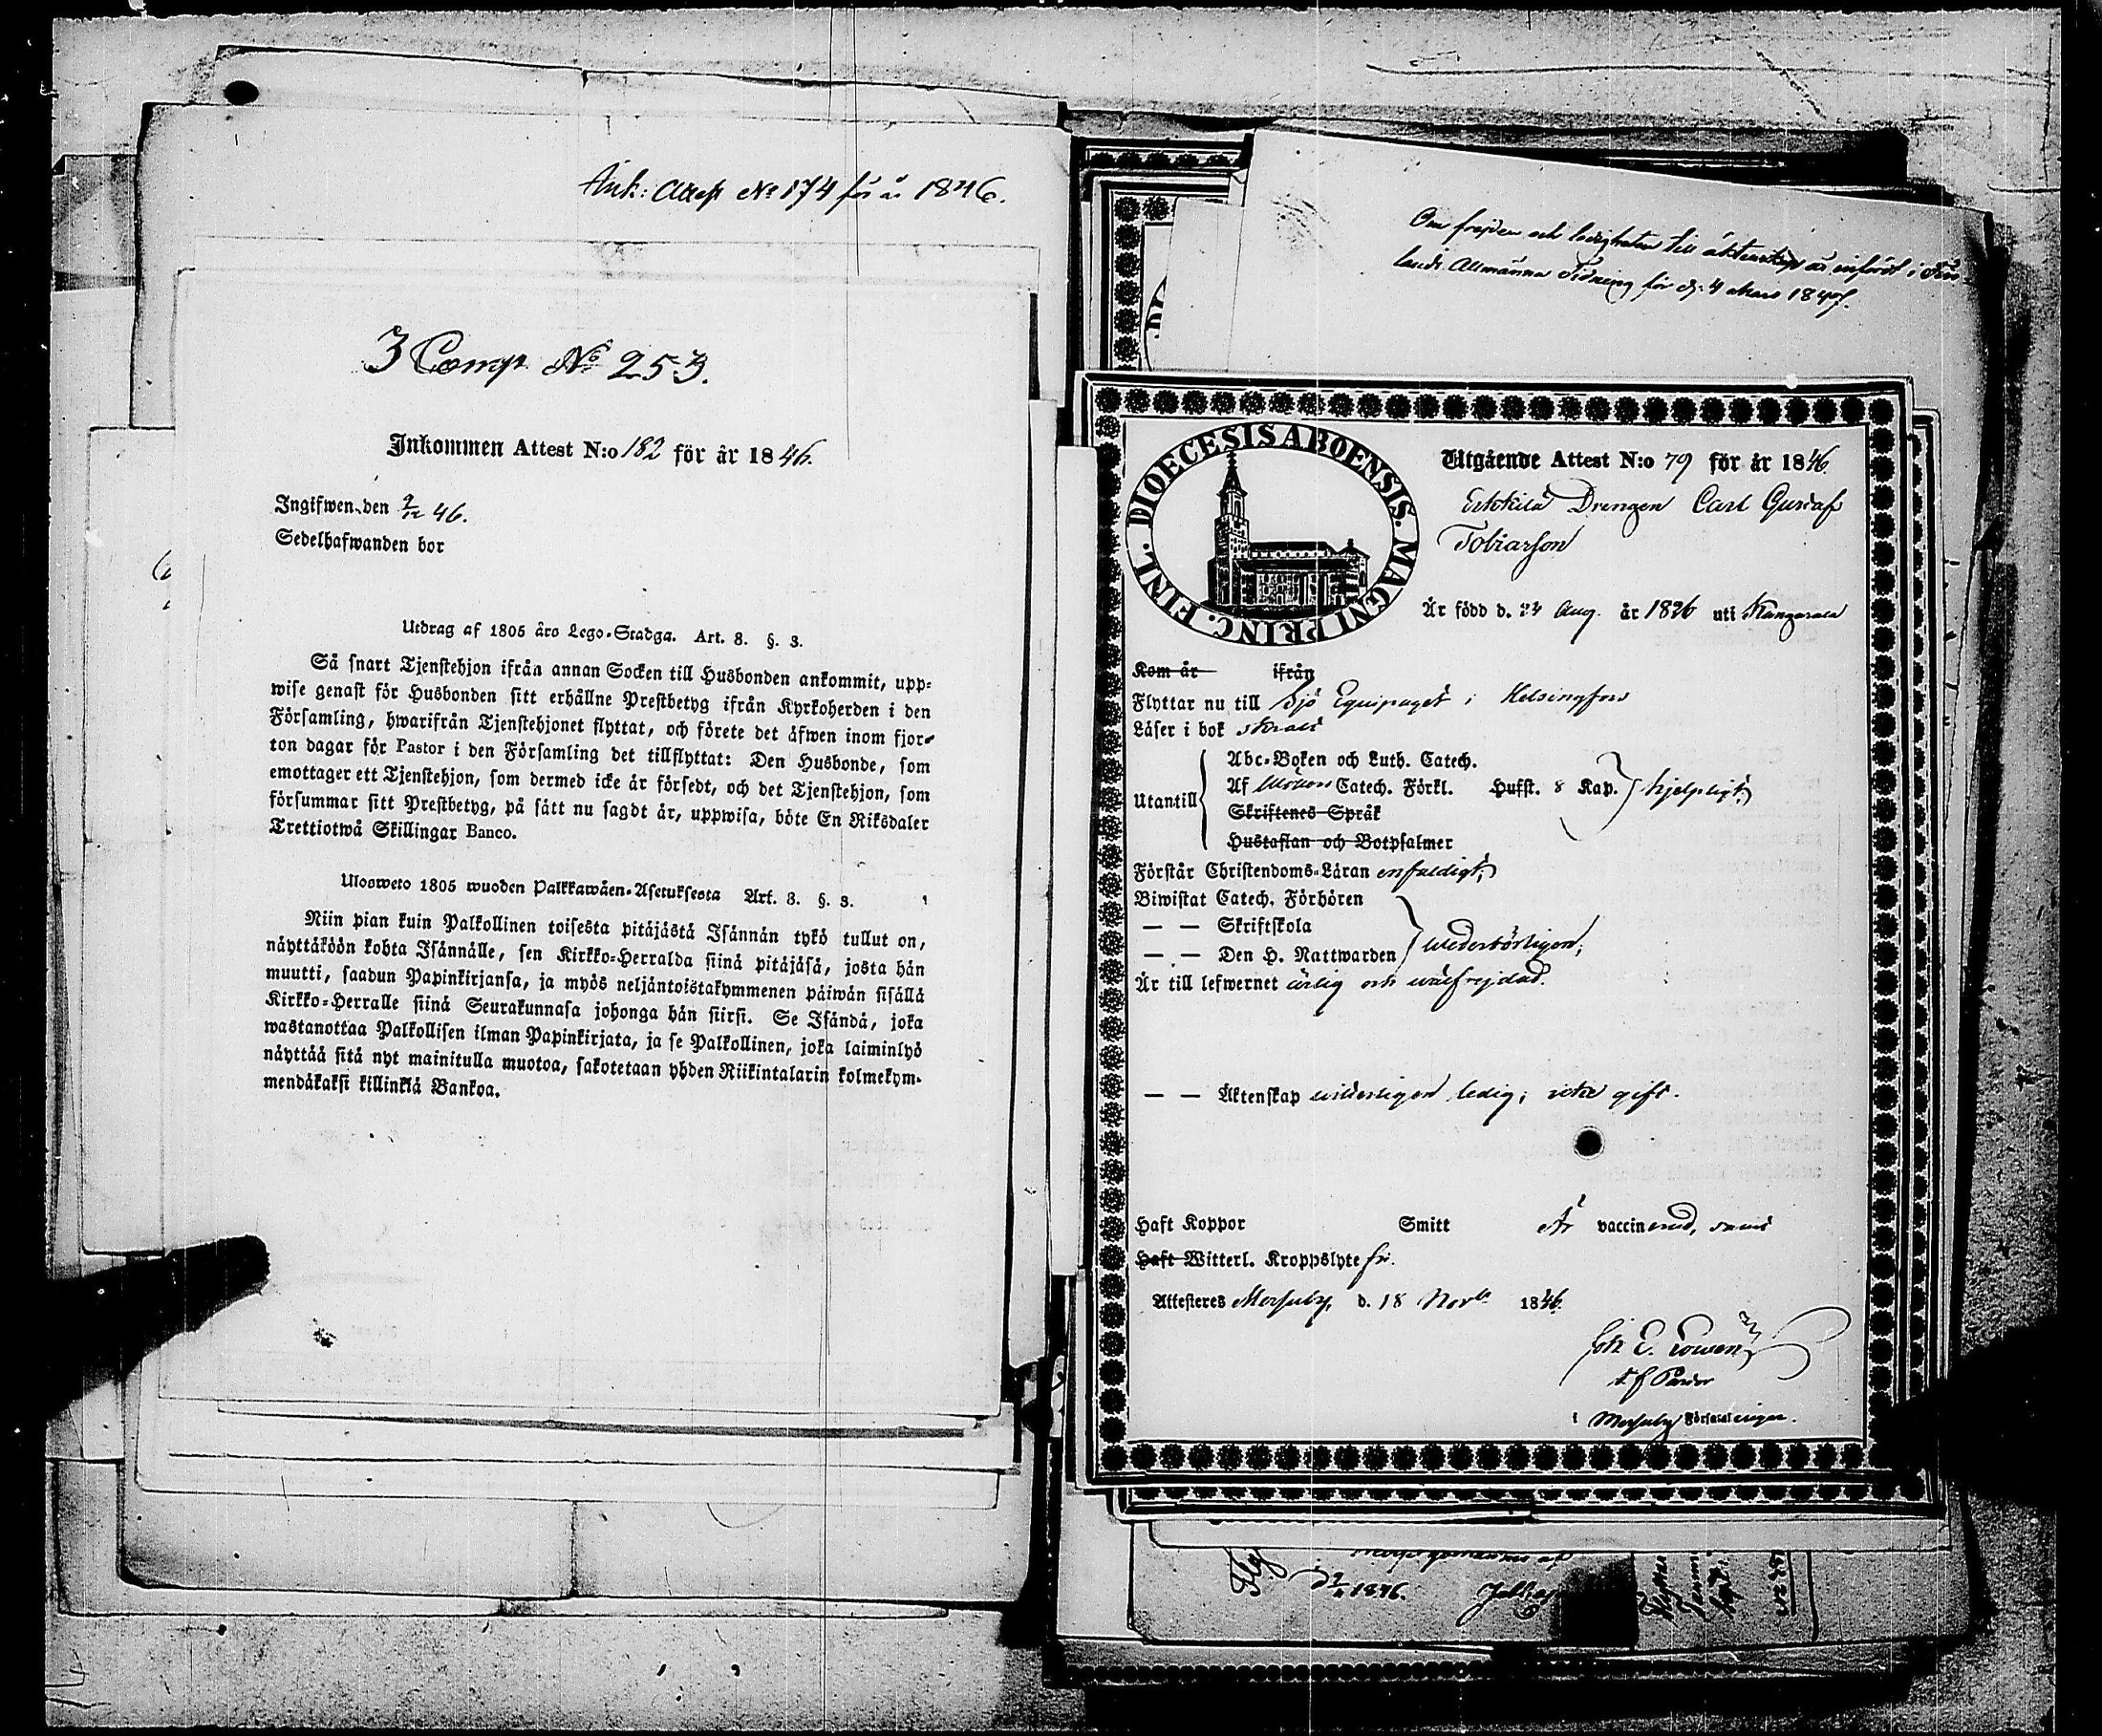 Ank: Attest No 174 för år 1846.
3 Comp. No 253.
Inkommen Attest N:o 182 för år 1846.
Ingifwen den 9/12 46.
Sedelhafwanden bor
Utdrag af 1805 års Lego-Stadga. Art. 8. §. 3.
Så snart Tjenstehjon ifrån annan Socken till Husbonden ankommit, upp-
wise genast för Husbonden sitt erhållne Prestbetyg ifrån Kyrkoherden i den
Församling, hwarifrån Tjenstehjonet flyttat, och förete det äfwen inom fjor-
ton dagar för Pastor i den Församling det tillflyttat: Den Husbonde, som
emottager ett Tjenstehjon, som dermed icke är försedt, och det Tjenstehjon, som
försummar sitt Prestbetyg, på sätt nu sagdt är, uppwisa, böte En Riksdaler
Trettiotwå Skillingar Banco.
Ulosweto 1805 wuoden Palkkawäen-Asetuksesta Art. 8. §. 3.
Niin pian kuin Palkollinen toisesta pitäjästä Isännän tykö tullut on,
näyttäköön kohta Isännälle, sen Kirkko-Herralda siinä pitäjäsä, josta hän
muutti, saadun Papinkirjansa, ja myös neljäntoistakymmenen päiwän sisällä
Kirkko-Herralle siinä Seurakunnasa johonga hän siirsi. Se Isändä, joka
wastanottaa Palkollisen ilman Papinkirjata, ja se Palkollinen, joka laiminlyö
näyttää sitä nyt mainitulla muotoa, sakotetaan yhden Riikintalarin kolmekym-
mendäkaksi killinkiä Bankoa.
Om frejden och ledigheten till äktenskap är infördt i Fin
lands Allmänna Tidning för d. 4 Mars 1847.
DIOECESIS ABOENSIS. MAGNI PRINC. FINL.
Utgående Attest N:o 79 för år 1846
Drengen Carl Gustaf
Tobiasson
Är född d. 24 Aug. år 1826 uti Kangasala
Kom år ifrån
Flyttar nu till Sjö Equipaget i Helsingfors
Läser i bok
Abc-Boken och Luth. Catech.
Utantill Af Catech. Förkl. Hufst. 8 Kap. hjelpligt;
Skriftenes Språk
Hustaflan och Botpsalmer
Förstår Christendoms-Läran enfaldigt;
Biwistat Catech. Förhören
— — Skriftskola
— — Den H. Nattwarden wederbörligen;
Är till lefwernet ärlig och wälfrejdad.
— — Äktenskap witterligen ledig; icke gift.
Haft Koppor Smitt Är vaccinerad, samt
Haft Witterl. Kroppslyte fri.
Attesteras Messuby, d. 18 Novbr 1846.
Joh E.
t. f. Pastor
i Messuby Församlingar.
1846.